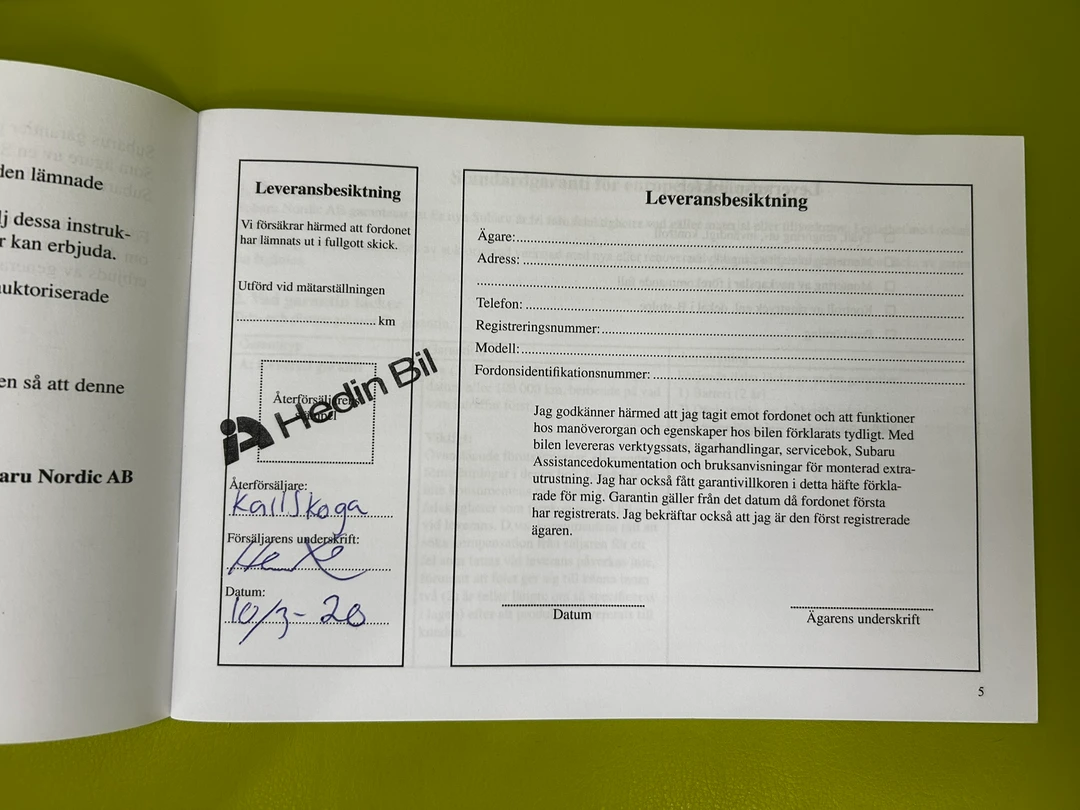 den lämnade
lj dessa instruk-
r kan erbjuda.
uktoriserade
en så att denne
aru Nordic AB
Leveransbesiktning
Vi försäkrar härmed att fordonet
har lämnats ut i fullgott skick.
Utförd vid mätarställningen
km
Återförsäljarens
stämpel
Hedin Bil
Återförsäljare:
Karlskoga
Försäljarens underskrift:
Datum:
10/3-20
Leveransbesiktning
Ägare:
Adress:
Telefon:
Registreringsnummer:
Modell:
Fordonsidentifikationsnummer:
Jag godkänner härmed att jag tagit emot fordonet och att funktioner
hos manöverorgan och egenskaper hos bilen förklarats tydligt. Med
bilen levereras verktygssats, ägarhandlingar, servicebok, Subaru
Assistancedokumentation och bruksanvisningar för monterad extra-
utrustning. Jag har också fått garantivillkoren i detta häfte förkla-
rade för mig. Garantin gäller från det datum då fordonet första
har registrerats. Jag bekräftar också att jag är den först registrerade
ägaren.
Datum
Ägarens underskrift
5